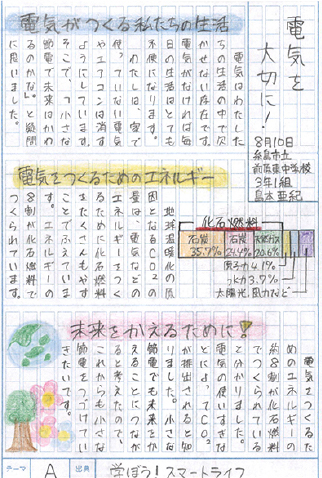 電気を
大切に!
8月10日
糸島市立
前原東中学校
3年1組
島本亜紀
電気がつくる私たちの生活
電気はわたした
ちの生活の中で欠
かせない存在です。
電気がなければ毎
日の生活はとても
不便になります。
わたしは、家で
使っていない電気
やエアコンは消す
ようにしています。
そこで、「小さな
節電で未来はかわ
るのかな」と疑問
に思いました。
電気をつくるためのエネルギー
化石燃料
石炭 35.7%
石炭 24.4%
天然ガス 20.6%
原子力4.1%
水力3.7%
太陽光,風力など
地球温暖化の原
因となるCO2の
量は、電気などの
エネルギーをつく
たくさんもやす
ことでふえます。
8割が化石燃料で
つくられています。
未来をかえるために!
電気をつくるた
めのエネルギーの
約8割が化石燃料
でつくられている
と分かりました。
電気の使いすぎな
どによってCO2
が排出されると知
りました。小さな
節電でも未来をか
えることにつなが
ると考えたので、
これからも小さな
節電をつづけてい
きたいです。
テーマ A 出典 学ぼう!スマートライフ